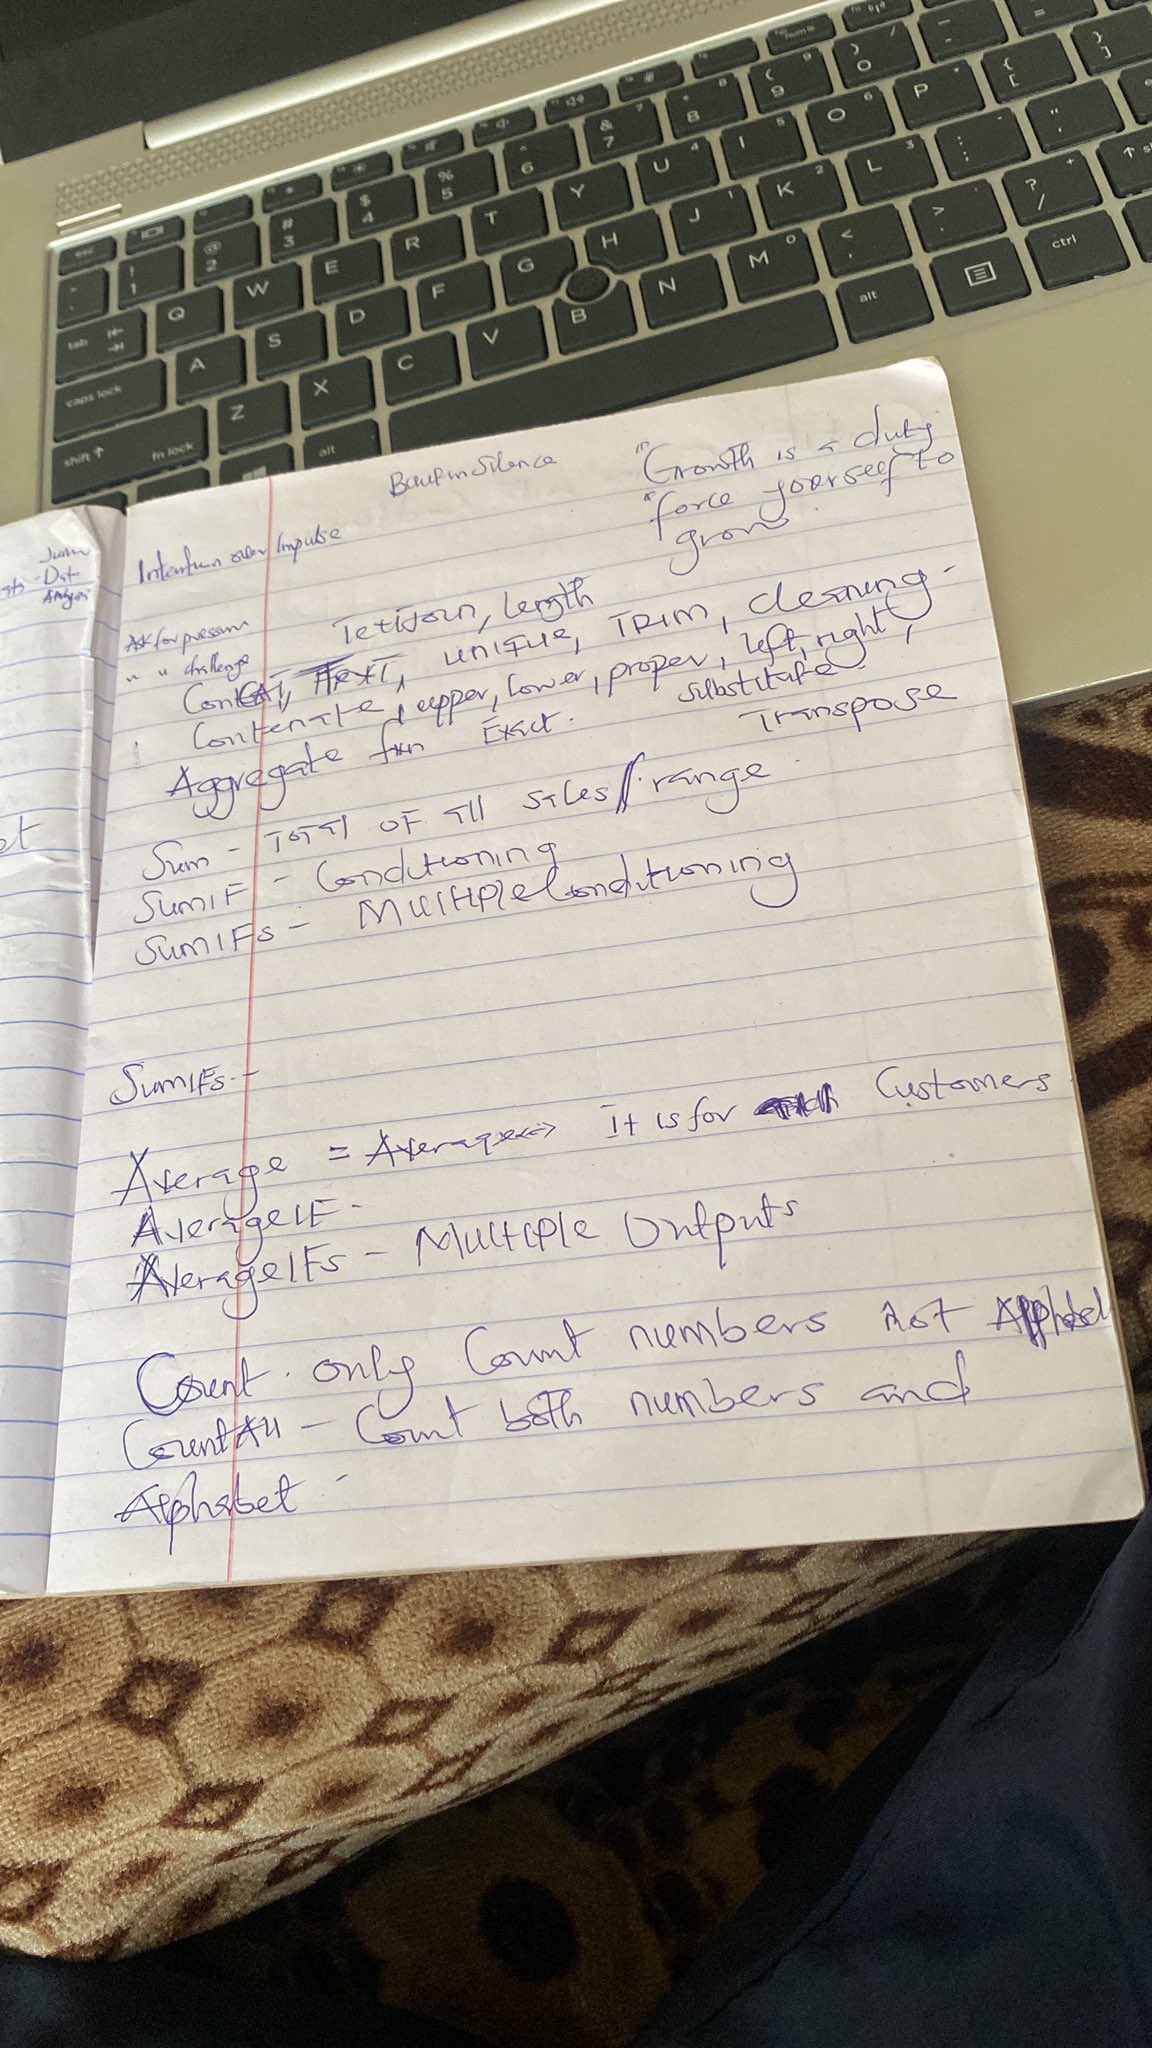 Built in Silence
"Growth is a duty
"force yourself to
grow.
Intention over Impulse
Ask for pressure
" " challenge
TextJoin, Length
ConCAT, TEXT, UNIQUE, TRIM, cleaning -
Contenate, upper, lower, proper, left, right,
Aggregate fxn Exact. substitute
Transpose
Sum - Total OF All sales / range
SumIF - Conditioning
SumIFs - Multiple Conditioning
SumIFs -
Average = Average<-> It is for Customers.
AverageIF -
AverageIFs - Multiple Outputs
Count. only Count numbers not Alphabet
CountAll - Count both numbers and
Alphabet -
esc
! 1
@ 2
# 3
$ 4
% 5
^ 6
& 7
* 8
( 9
) 0
tab Q W E R T Y U I O P { [ } ]
caps lock A S D F G H J K L : ;
shift Z X C V B N M < , > . ? /
fn lock
alt
alt
ctrl